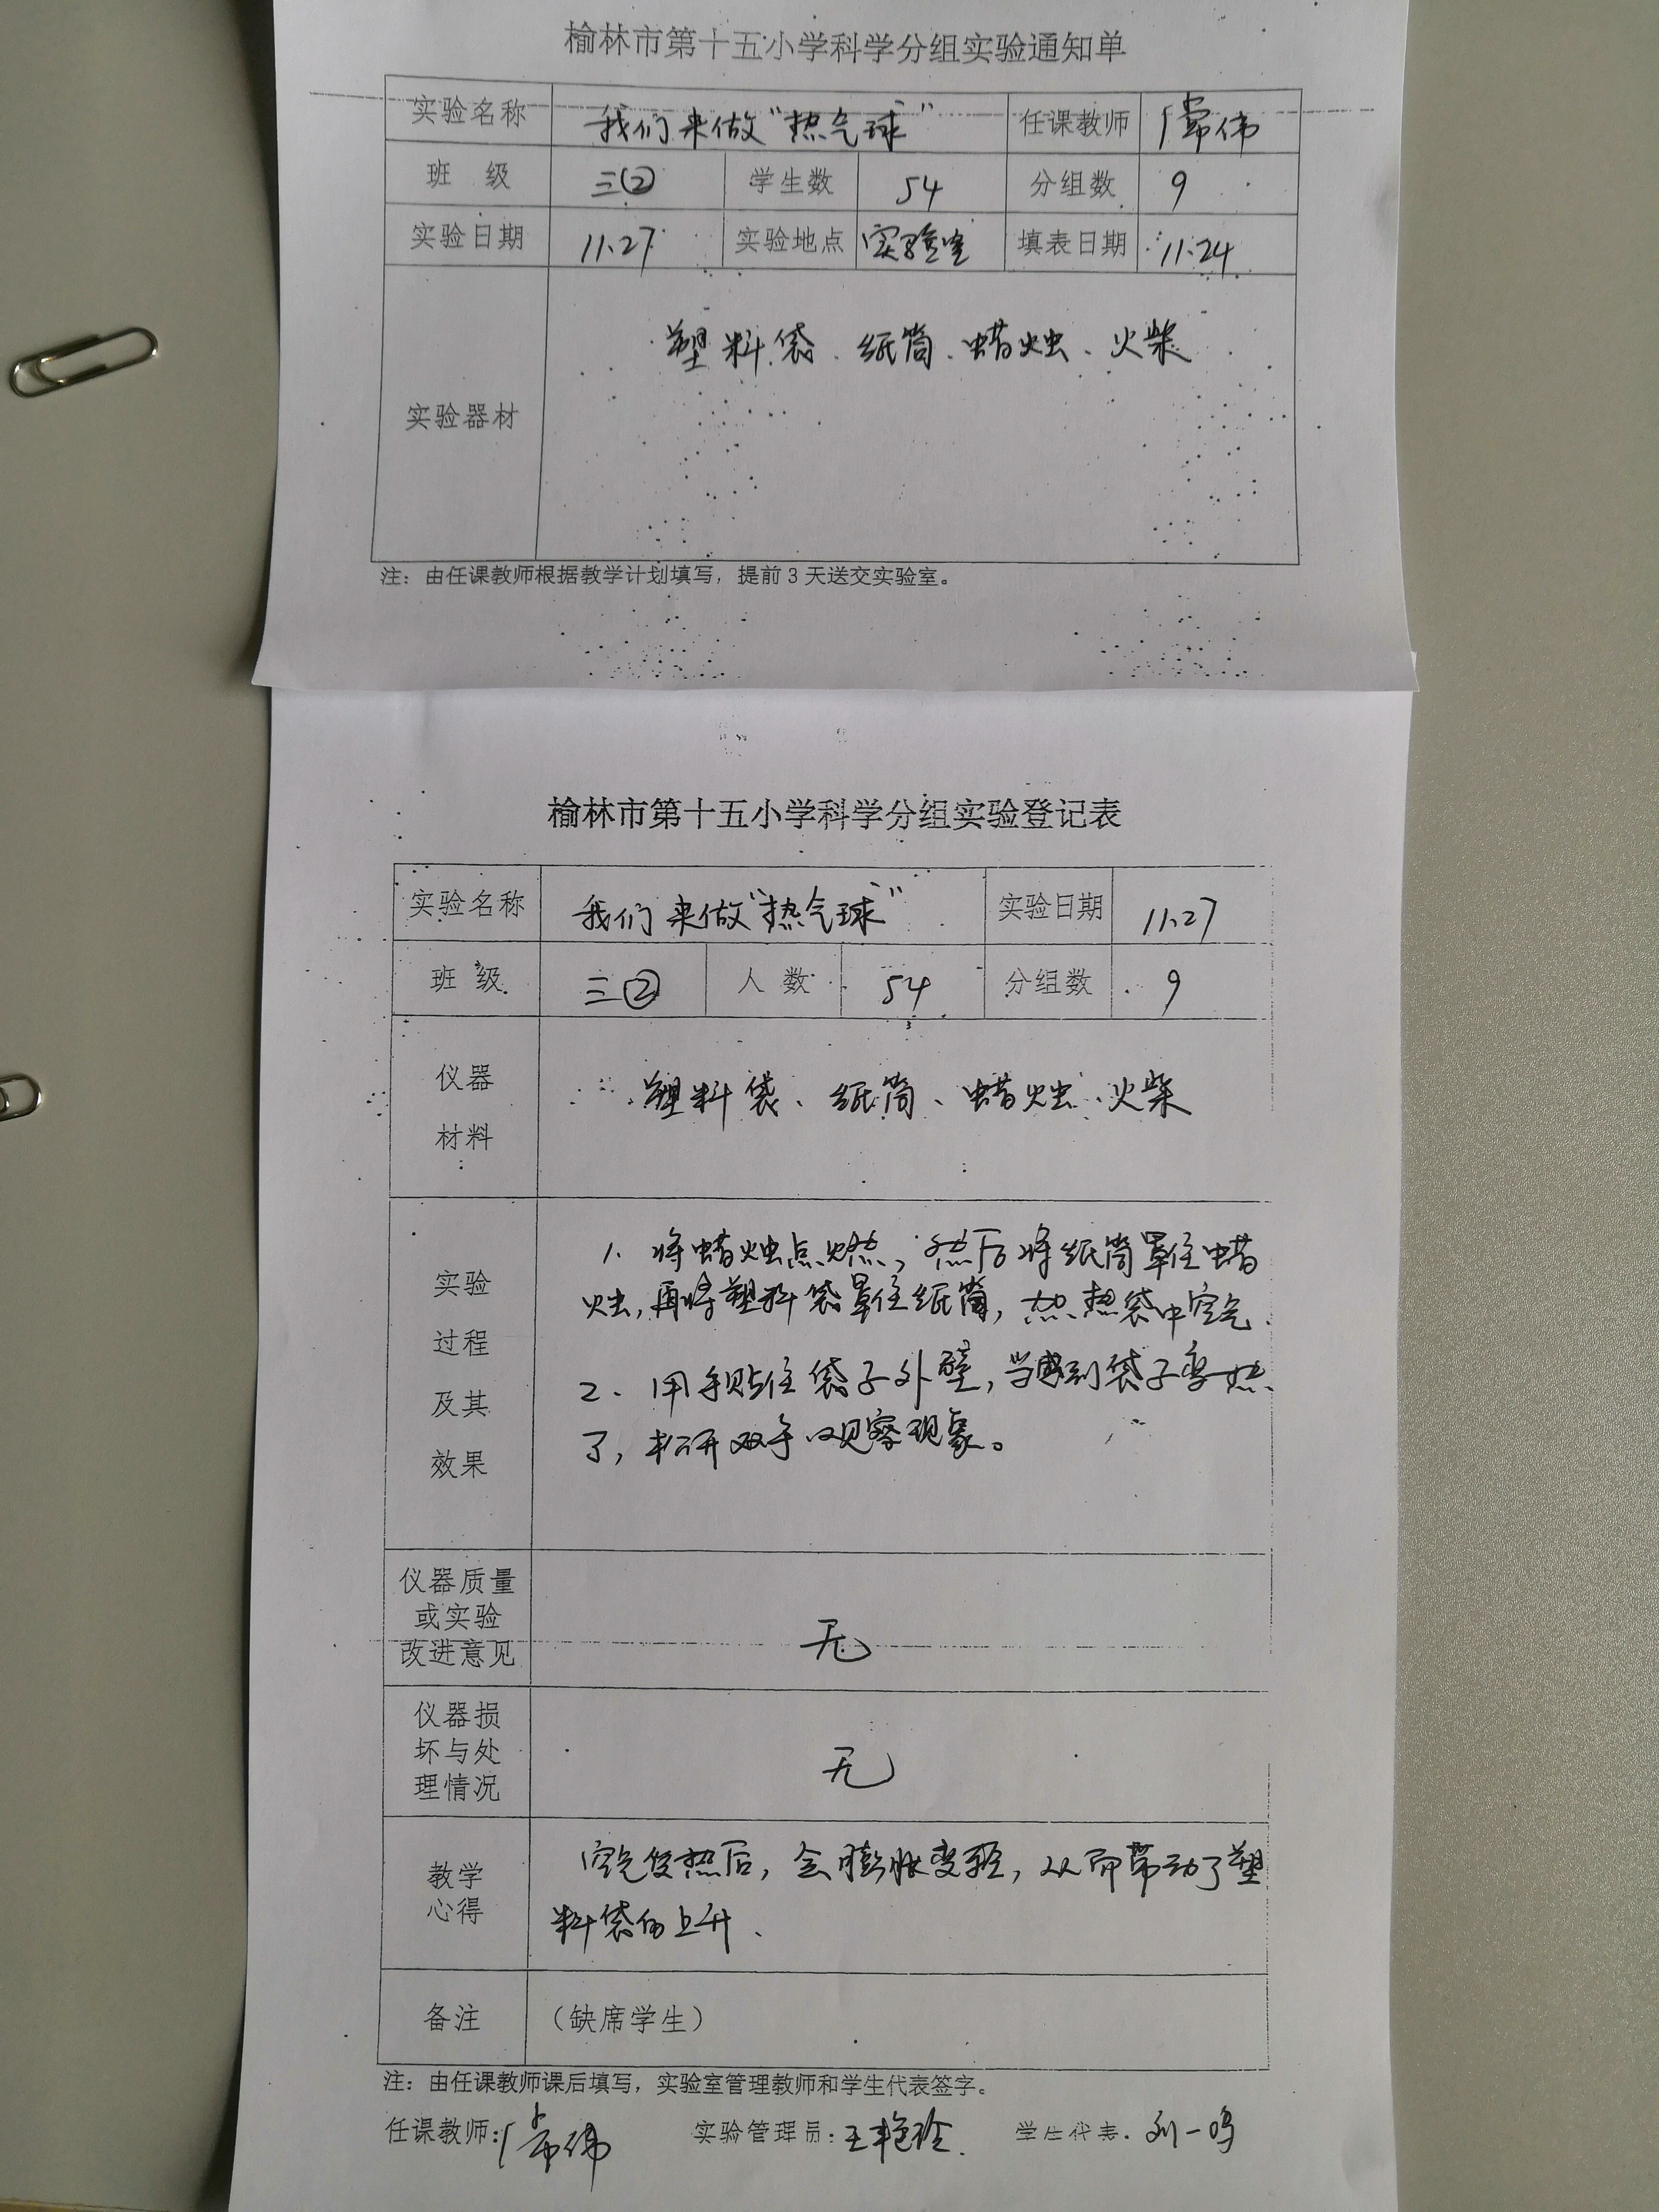 榆林市第十五小学科学分组实验通知单
实验名称 我们来做“热气球” 任课教师 常伟
班 级 三② 学生数 54 分组数 9
实验日期 11.27 实验地点 实验室 填表日期 11.24
塑料袋、纸筒、蜡烛、火柴
实验器材
注：由任课教师根据教学计划填写，提前3天送交实验室。
榆林市第十五小学科学分组实验登记表
实验名称 我们来做“热气球” 实验日期 11.27
班 级 三② 人 数 54 分组数 9
仪器
材料
塑料袋、纸筒、蜡烛、火柴
实验
过程
及其
效果
1、将蜡烛点燃，然后将纸筒罩住蜡
烛，再将塑料袋罩住纸筒，加热袋中空气。
2、用手贴住袋子外壁，当感到袋子变热
了，松开双手观察现象。
仪器质量
或实验
改进意见
无
仪器损
坏与处
理情况
无
教学
心得
空气受热后，会膨胀变轻，从而带动了塑
料袋的上升、
备注 （缺席学生）
注：由任课教师课后填写，实验室管理教师和学生代表签字。
任课教师：常伟 实验管理员：王艳玲 学生代表：刘一鸣